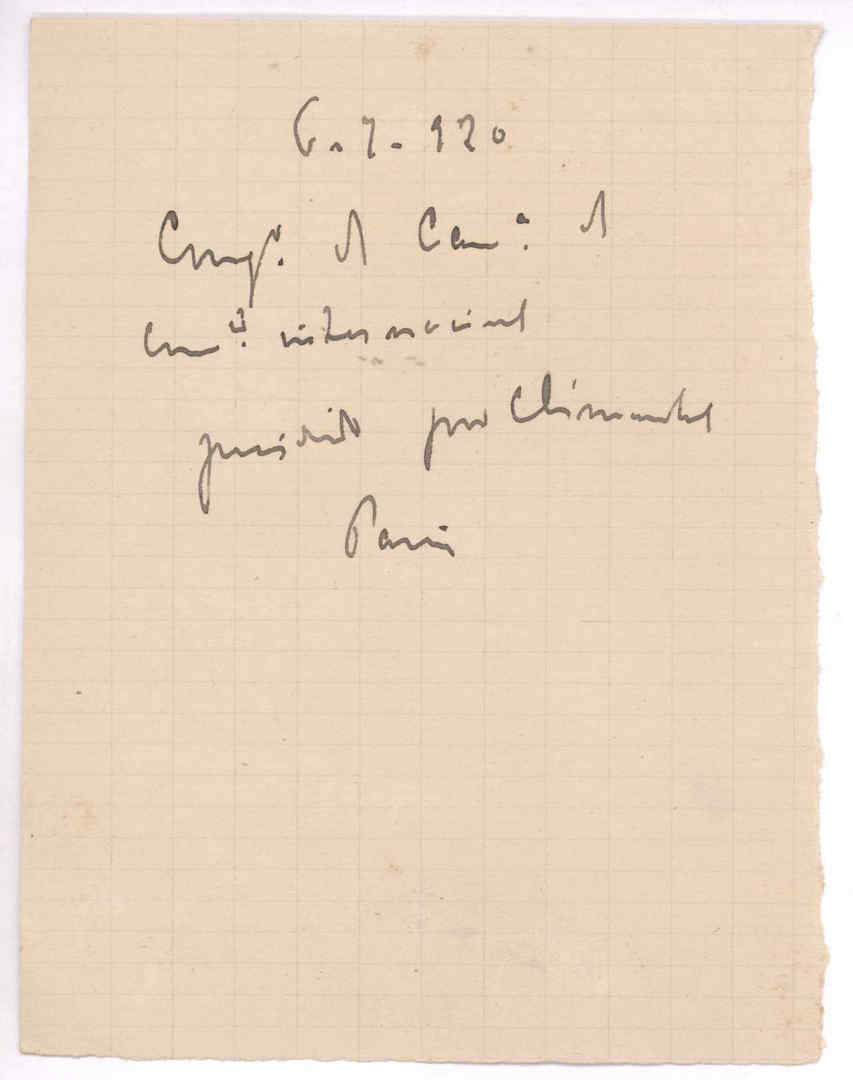 6-7-920
Congr. d Cam.ª d
Com.º internacional
presidido por Clementel
Paris